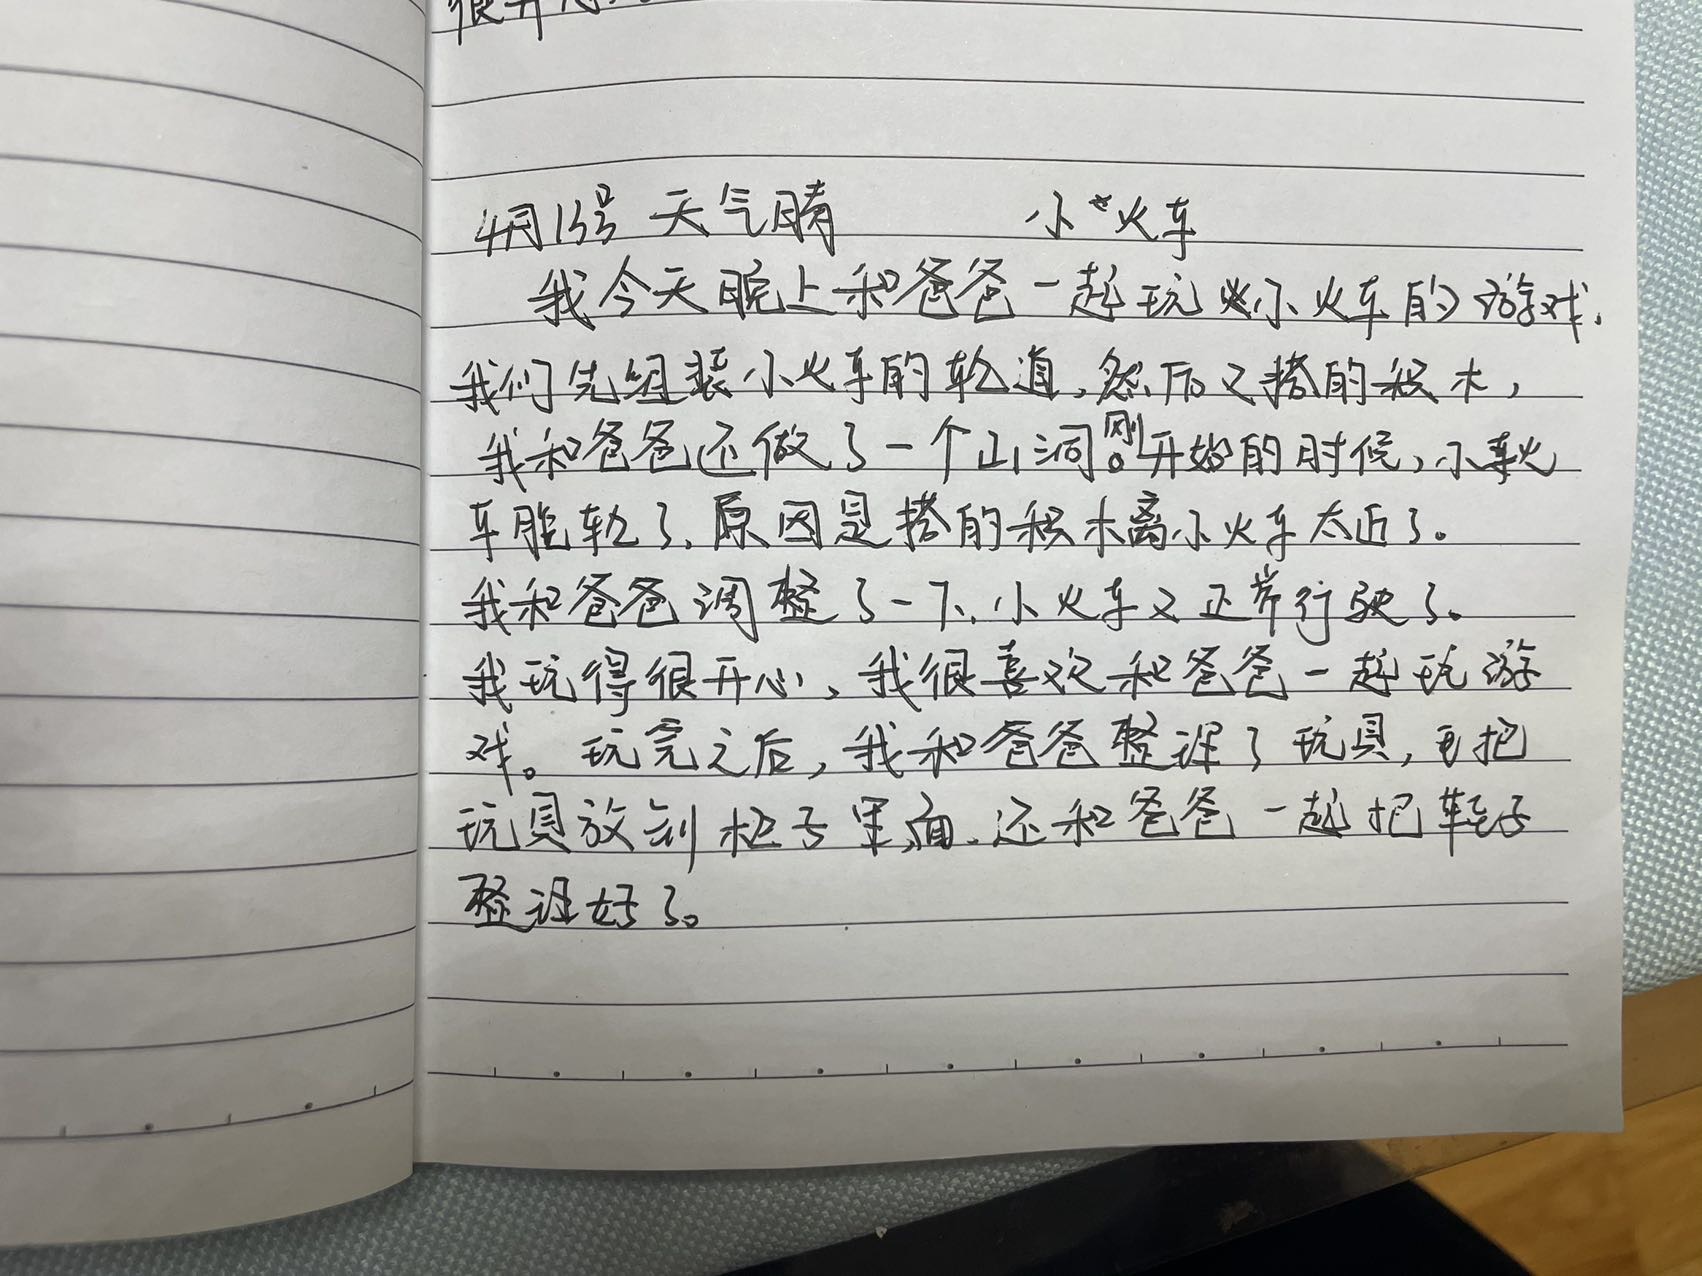 4月13号 天气晴 小火车
我今天晚上和爸爸一起玩小火车的游戏,
我们先组装小火车的轨道,然后又搭的积木,
我和爸爸还做了一个山洞。刚开始的时候,小火
车脱轨了,原因是搭的积木离小火车太近了。
我和爸爸调整了一下,小火车又正常行驶了。
我玩得很开心,我很喜欢和爸爸一起玩游
戏。玩完之后,我和爸爸整理了玩具,再把
玩具放到柜子里面,还和爸爸一起把鞋子
整理好了。